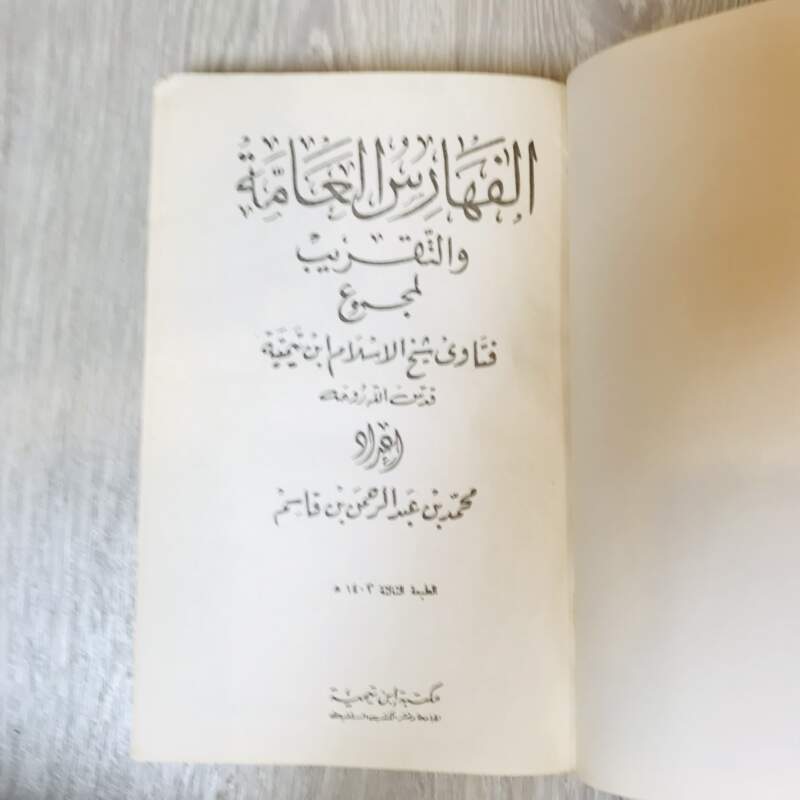 الفَهَارِسُ العَامَّة
والتَّقريب
لمجموع
فتاوى شيخ الإسلام ابن تيميَّة
قدّس الله روحه
إعداد
محمّد بن عَبد الرحمن بن قاسِم
الطبعة الثالثة ١٤٠٣ هـ
مكتبة ابن تيمية